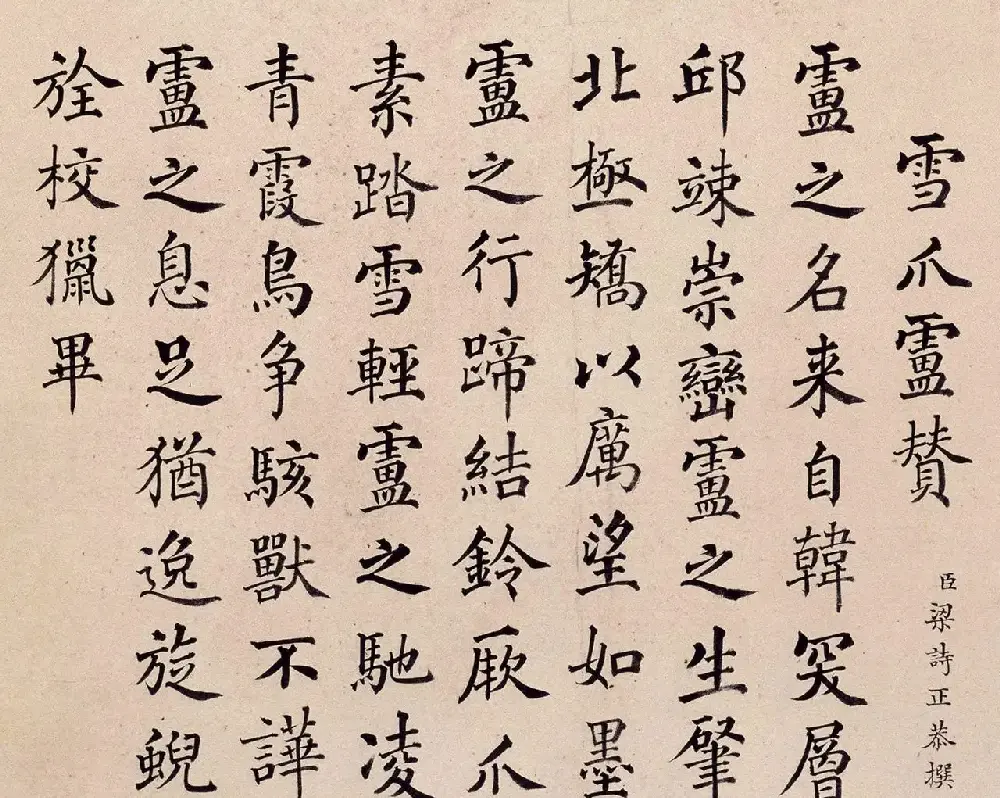 雪爪盧贊
臣梁詩正恭撰
盧之名来自韓突層
邱竦崇巒盧之生肇
北極矯以厲望如墨
盧之行蹄結鈴厥爪
素踏雪輕盧之馳凌
青霞鳥争駭獸不譁
盧之息足猶逸旋蜺
旍校獵畢